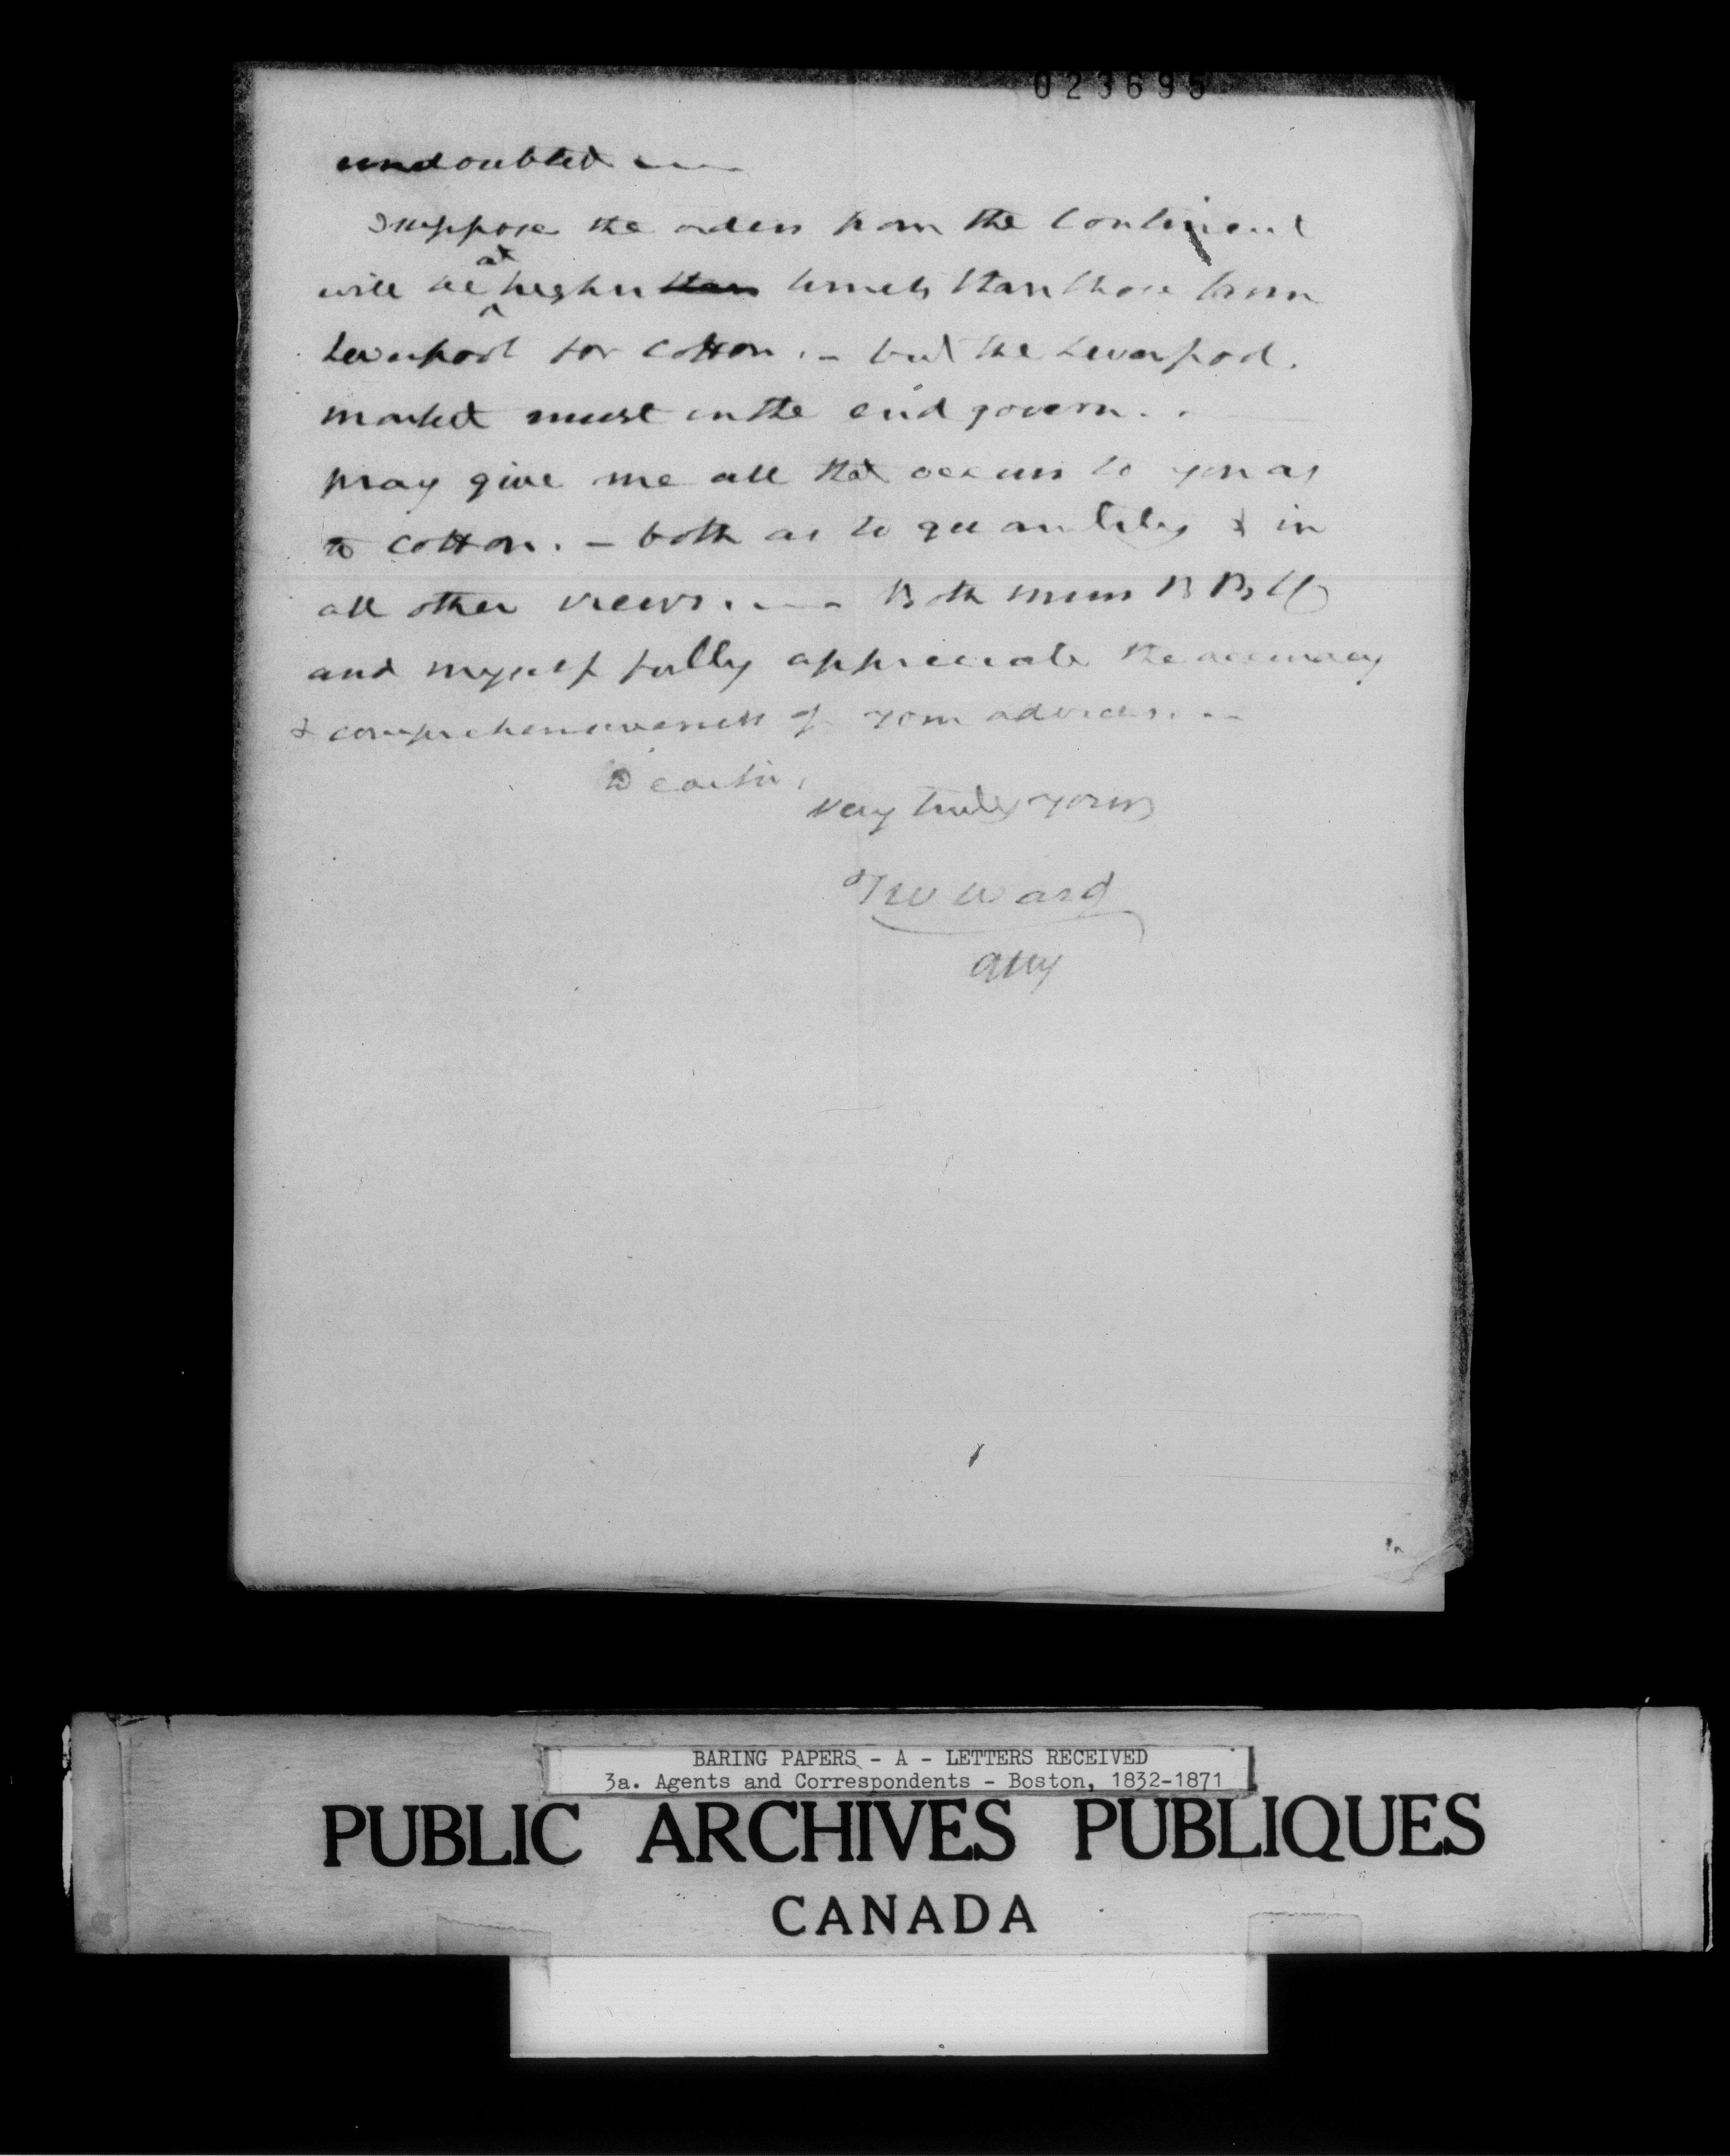 023695
undoubted ——
I suppose the orders from the Continent
will be at higher than limits than those from
Liverpool for cotton. – but the Liverpool
market must in the end govern. .
pray give me all that occurs to you as
to cotton. – both as to quantity & in
all other views. – – Both Messrs B B & Co
and myself fully appreciate the accuracy
& comprehensiveness of your advices. –
Dear Sir,
very truly yours
T W Ward
atty
BARING PAPERS - A - LETTERS RECEIVED
3a. Agents and Correspondents - Boston, 1832-1871
PUBLIC ARCHIVES PUBLIQUES
CANADA